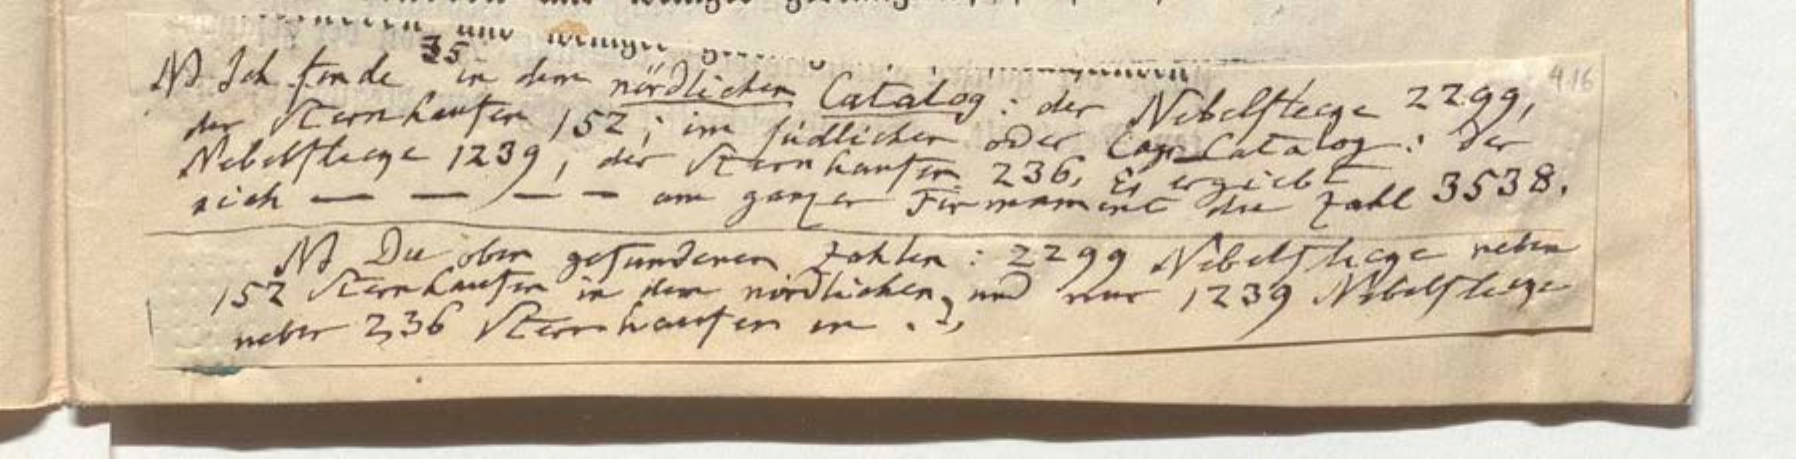 NB Ich finde 35 in dem nördlichen Catalog: der Nebelflecge 2299,
der Sternhaufen 152; im südlichen oder Cap-Catalog: der
Nebelflecge 1239, der Sternhaufen 236. Es ergiebt
sich — — — — am ganzen Firmament die Zahl 3538.
NB Die oben gefundenen Zahlen: 2299 Nebelflecge neben
152 Sternhaufen in dem nördlichen, und nur 1239 Nebelflecge
neben 236 Sternhaufen im
416